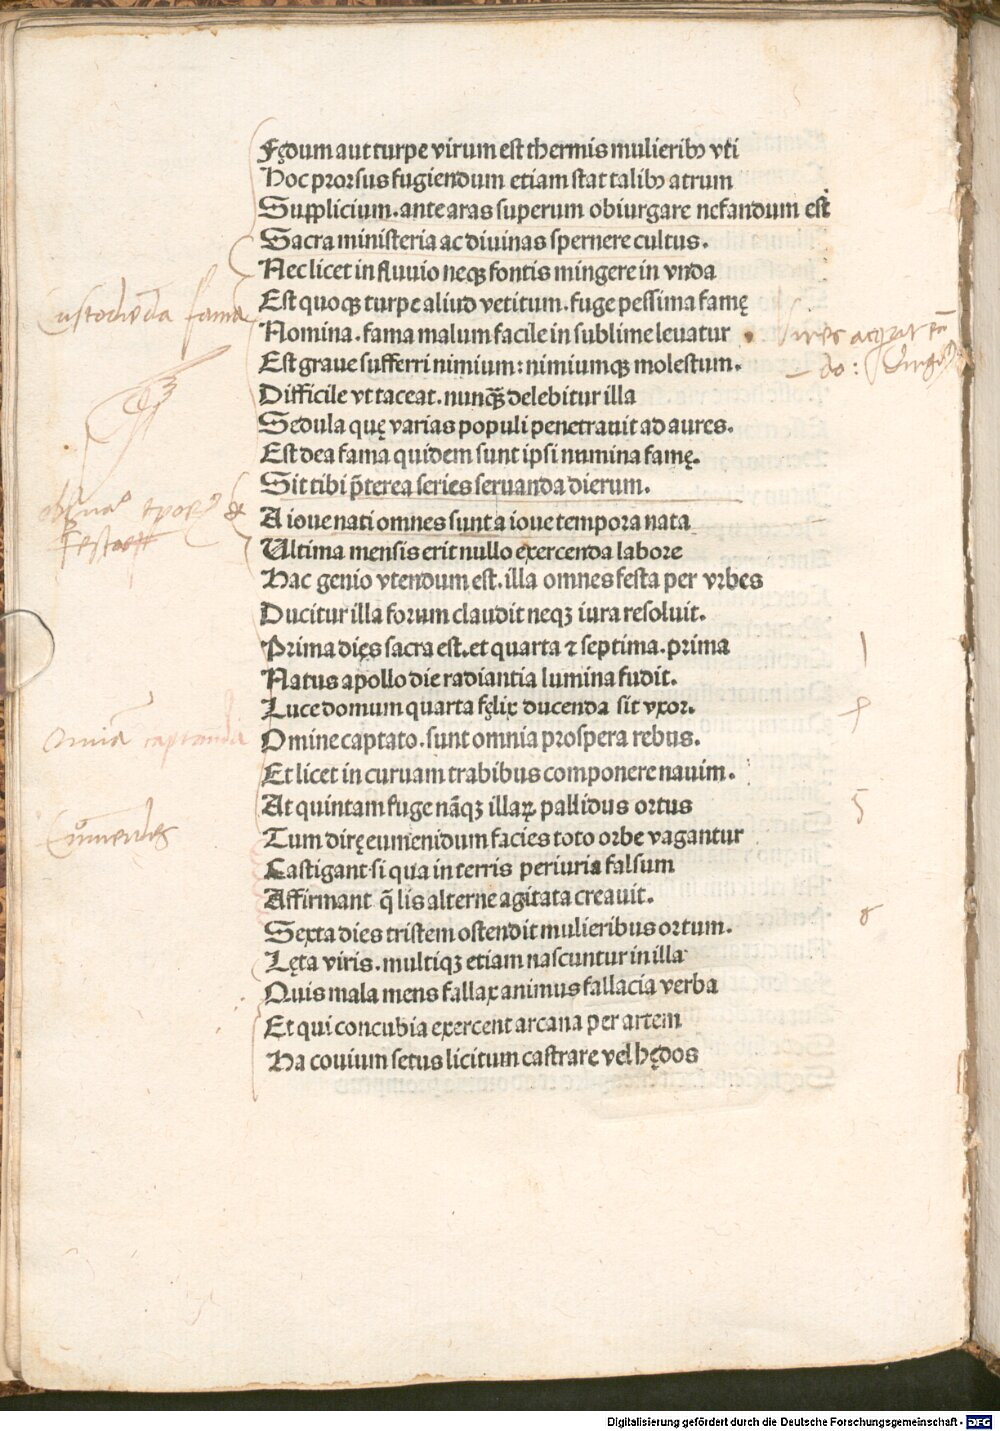 Fędum aut turpe virum est thermis mulieribꝫ vti
Hoc prorsus fugiendum etiam stat talibꝫ atrum
Supplicium. ante aras superum obiurgare nefandum est
Sacra ministeria ac diuinas spernere cultus.
Nec licet in fluuio neqꝫ fontis mingere in vnda
Est quoqꝫ turpe aliud vetitum. fuge pessima famę
Custodiēda fama
Nomina. fama malum facile in sublime leuatur
vires acqrit
Est graue sufferri nimium: nimiumqꝫ molestum.
do: Virgi
Difficile vt taceat. nunqꝫ̄ delebitur illa
Sedula quę varias populi penetrauit ad aures.
Est dea fama quidem sunt ipsi numina famę.
Sit tibi p̄terea series seruanda dierum.
A ioue nati omnes sunt a ioue tempora nata
&
Vltima mensis erit nullo exercenda labore
Hac genio vtendum est. illa omnes festa per vrbes
Ducitur illa forum claudit neqꝫ iura resoluit.
Prima dięs sacra est. et quarta ⁊ septima. prima
1
Natus apollo die radiantia lumina fudit.
Luce domum quarta fęlix ducenda sit vxor.
Omnia captanda
Omine captato. sunt omnia prospera rebus.
Et licet in curuam trabibus componere nauim.
At quintam fuge nāqꝫ illaꝝ pallidus ortus
5
Eumenides
Tum dirę eumenidum facies toto orbe vagantur
Castigant si qua in terris periuria falsum
Affirmant q̄ lis alterne agitata creauit.
6
Sexta dies tristem ostendit mulieribus ortum.
Lęta viris. multiqꝫ etiam nascuntur in illa
Quis mala mens fallax animus fallacia verba
Et qui concubia exercent arcana per artem
Ha couium setus licitum castrare vel hędos
Digitalisierung gefördert durch die Deutsche Forschungsgemeinschaft - DFG